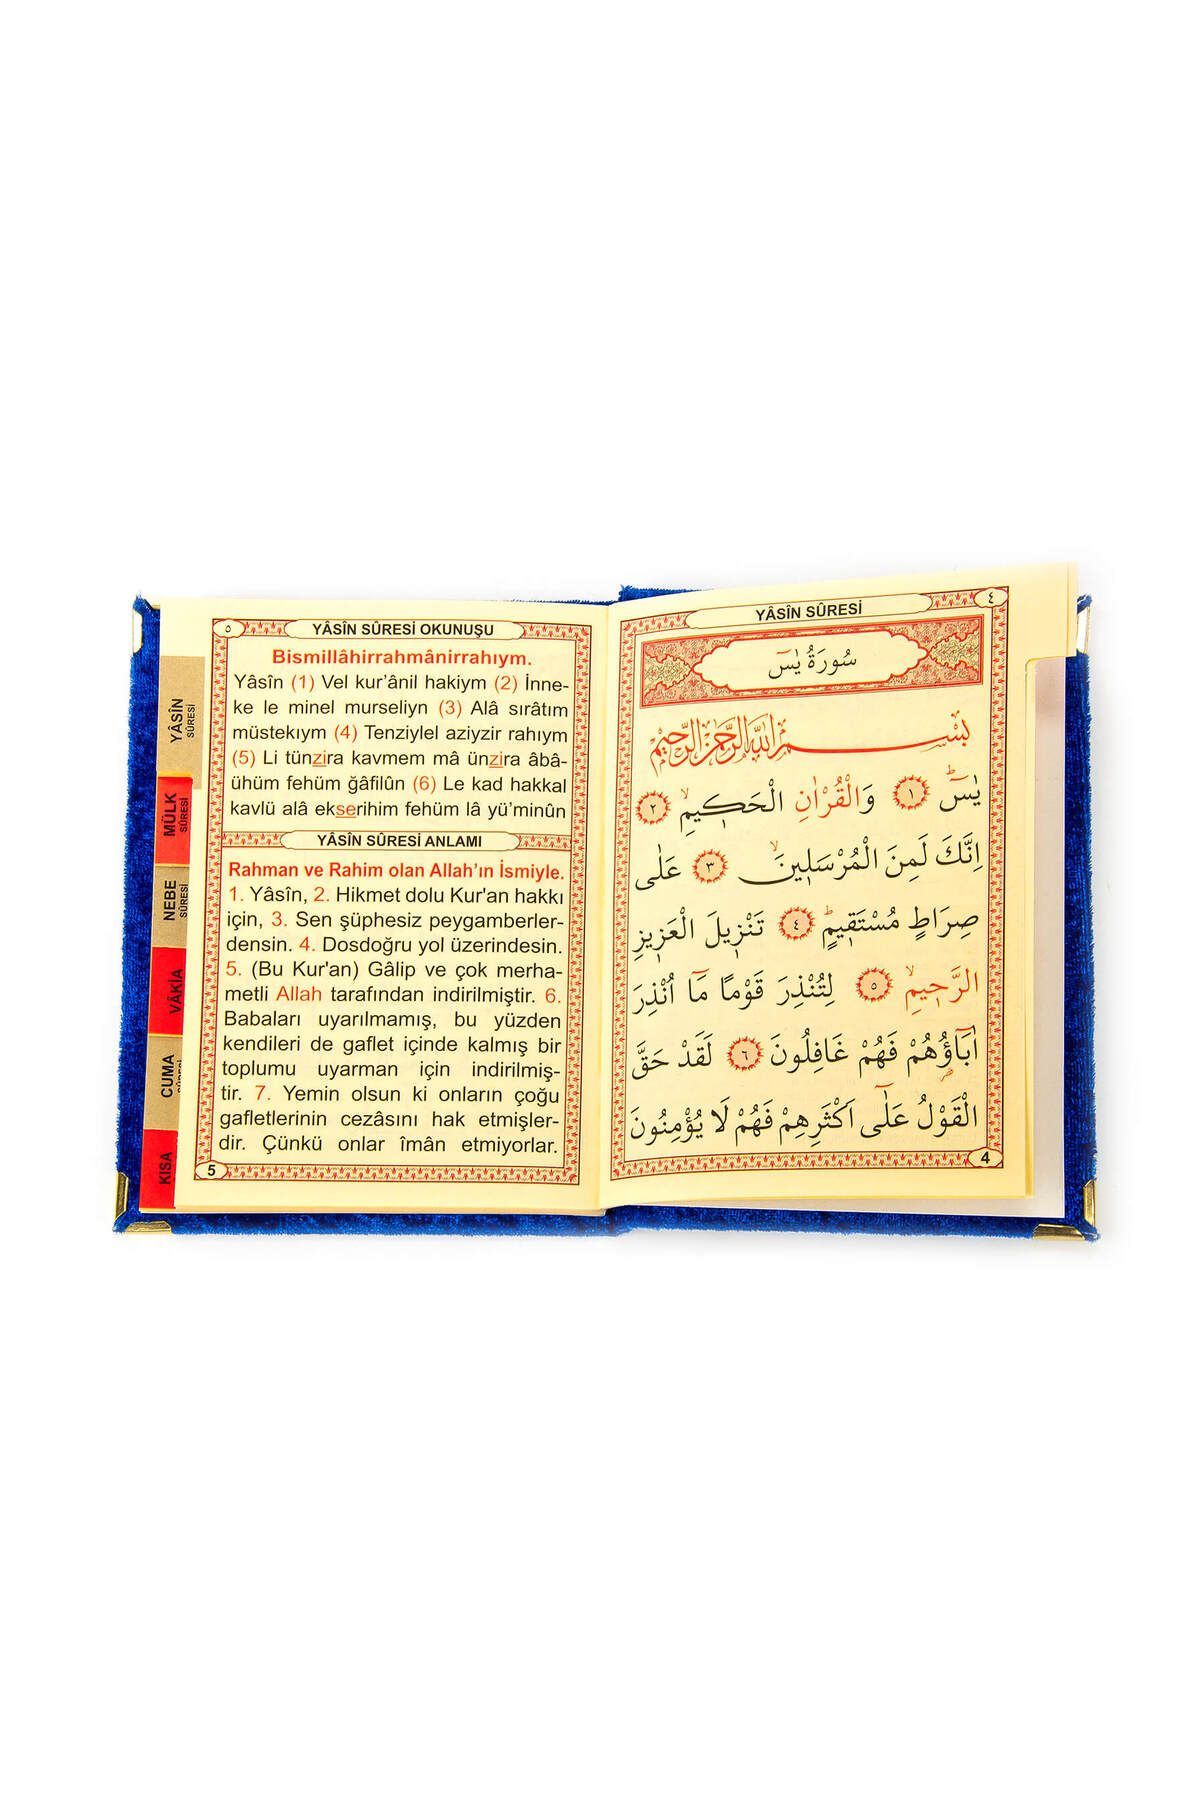 YÂSÎN SÛRESİ
٤
سُورَةُ يٰسٓ
بِسْمِ اللّٰهِ الرَّحْمٰنِ الرَّحِيمِ
يٰسٓ ۚ ﴿١﴾ وَالْقُرْاٰنِ الْحَكٖيمِ ۙ ﴿٢﴾
اِنَّكَ لَمِنَ الْمُرْسَلٖينَ ۙ ﴿٣﴾ عَلٰى
صِرَاطٍ مُسْتَقٖيمٍ ؕ ﴿٤﴾ تَنْزٖيلَ الْعَزٖيزِ
الرَّحٖيمِ ۙ ﴿٥﴾ لِتُنْذِرَ قَوْمًا مَٓا اُنْذِرَ
اٰبَٓاؤُ۬هُمْ فَهُمْ غَافِلُونَ ﴿٦﴾ لَقَدْ حَقَّ
الْقَوْلُ عَلٰٓى اَكْثَرِهِمْ فَهُمْ لَا يُؤْمِنُونَ
4
٥
YÂSÎN SÛRESİ OKUNUŞU
Bismillâhirrahmânirrahıym.
Yâsîn (1) Vel kur'ânil hakiym (2) İnne-
ke le minel murseliyn (3) Alâ sırâtım
müstekıym (4) Tenziylel aziyzir rahıym
(5) Li tünzira kavmem mâ ünzira âbâ-
ühüm fehüm ğâfilûn (6) Le kad hakkal
kavlü alâ ekserihim fehüm lâ yü'minûn
YÂSÎN SÛRESİ ANLAMI
Rahman ve Rahim olan Allah'ın İsmiyle.
1. Yâsîn, 2. Hikmet dolu Kur'an hakkı
için, 3. Sen şüphesiz peygamberler-
densin. 4. Dosdoğru yol üzerindesin.
5. (Bu Kur'an) Gâlip ve çok merha-
metli Allah tarafından indirilmiştir. 6.
Babaları uyarılmamış, bu yüzden
kendileri de gaflet içinde kalmış bir
toplumu uyarman için indirilmiş-
tir. 7. Yemin olsun ki onların çoğu
gafletlerinin cezâsını hak etmişler-
dir. Çünkü onlar îmân etmiyorlar.
5
YÂSÎN
SÛRESİ
MÜLK
SÛRESİ
NEBE
SÛRESİ
VÂKIA
CUMA
KISA